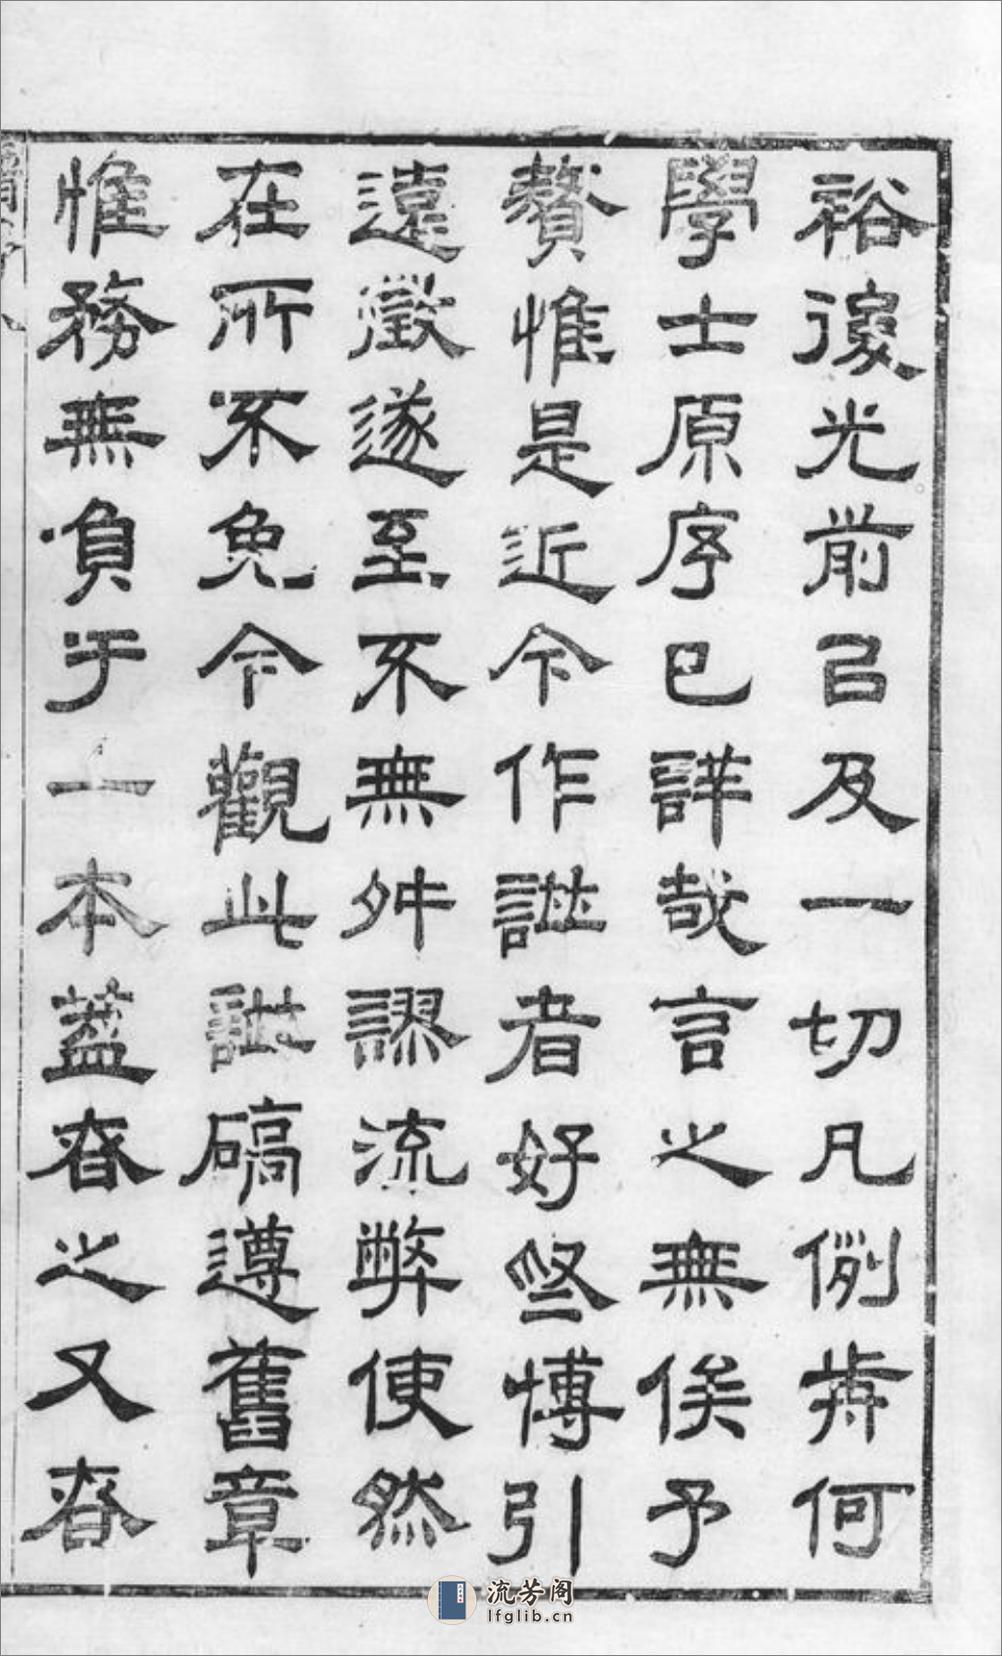 裕後光前㠯及一切凡例何
學士原序已詳哉言之無俟予
贅惟是近今作譜者好博引
遠徵遂至不無舛謬流弊使然
在所不免今觀此譜稿遵舊章
惟務無負于一本蓋昚之又昚
流芳阁
lfglib.cn